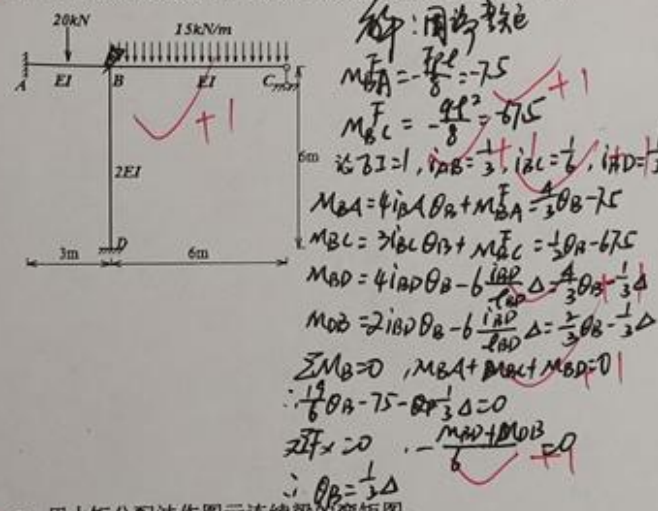 20kN
15kN/m
A EI B EI C
2EI
6m
D
3m 6m
解:
M^F_BA = -Fpl/8 = -7.5
+1
+1
M^F_BC = -ql²/8 = -67.5
EI=1, i_AB=1/3, i_BC=1/6,
M_BA=4i_BAθ_B+M^F_BA=4/3θ_B-7.5
M_BC=3i_BCθ_B+M^F_BC=1/2θ_B-67.5
M_BD=4i_BDθ_B-6 i_BD/l_BD Δ=4/3θ_B-1/3Δ
+1
M_DB=2i_BDθ_B-6 i_BD/l_BD Δ=2/3θ_B-1/3Δ
ΣM_B=0, M_BA+M_BC+M_BD=0
+1
∴ 19/6θ_B-75-1/3Δ=0
ΣFx=0 -(M_BD+M_DB)/6=0
+1
∴ θ_B=1/3Δ